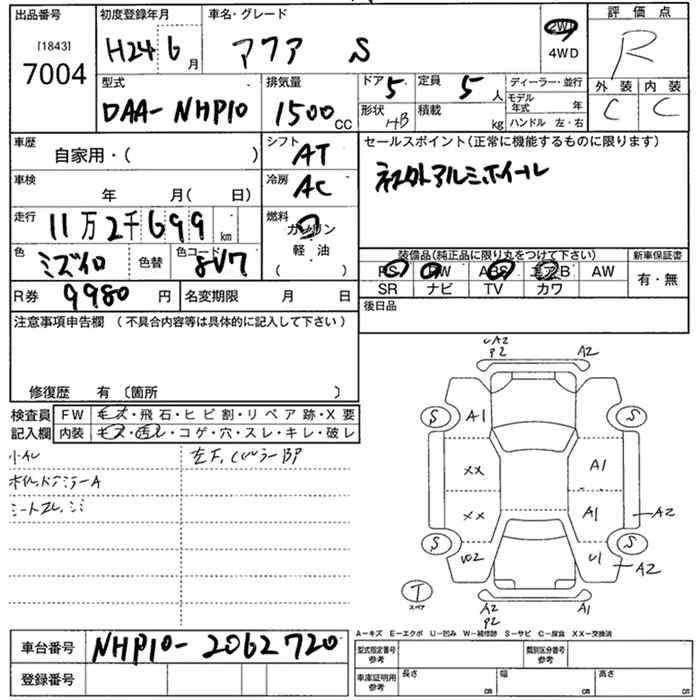 出品番号 初度登録年月 車名・グレード 評価点
[1843] 2WD
7004 H24 6月 アクア S 4WD R
型式 排気量 ドア 5 定員 5人 ディーラー・並行 外装 内装
DAA-NHP10 1500CC 形状 HB 積載 kg モデル年式 年 C C
ハンドル 左・右
車歴 自家用・( ) シフト AT セールスポイント(正常に機能するものに限ります)
車検 年 月( 日) 冷房 AC 社外アルミホイール
走行 11万2千699km 燃料 ガソリン
色 ミズイロ 色替 色コード 8V7 軽・油 ( )
装備品(純正品に限り丸をつけて下さい) 新車保証書
PS PW ABS エアB AW 有・無
SR ナビ TV カワ
R券 9980円 名変期限 月 日 後日品
注意事項申告欄 (不具合内容等は具体的に記入して下さい)
修復歴 有 〔箇所 〕
検査員 FW キズ・飛石・ヒビ割・リペア跡・X要
記入欄 内装 キズ・汚レ・コゲ・穴・スレ・キレ・破レ
A2
P2 A2
S A1 S
XX A1
XX A1 A2
S U02 U1 S A2
T
スペア A2 A2
P2
A-キズ E-エクボ U-凹み W-補修跡 S-サビ C-腐食 XX-交換済
車台番号 NHP10-2062720 型式指定番号 参考 類別区分番号 参考
登録番号 車庫証明用 参考 長さ cm 幅 cm 高さ cm